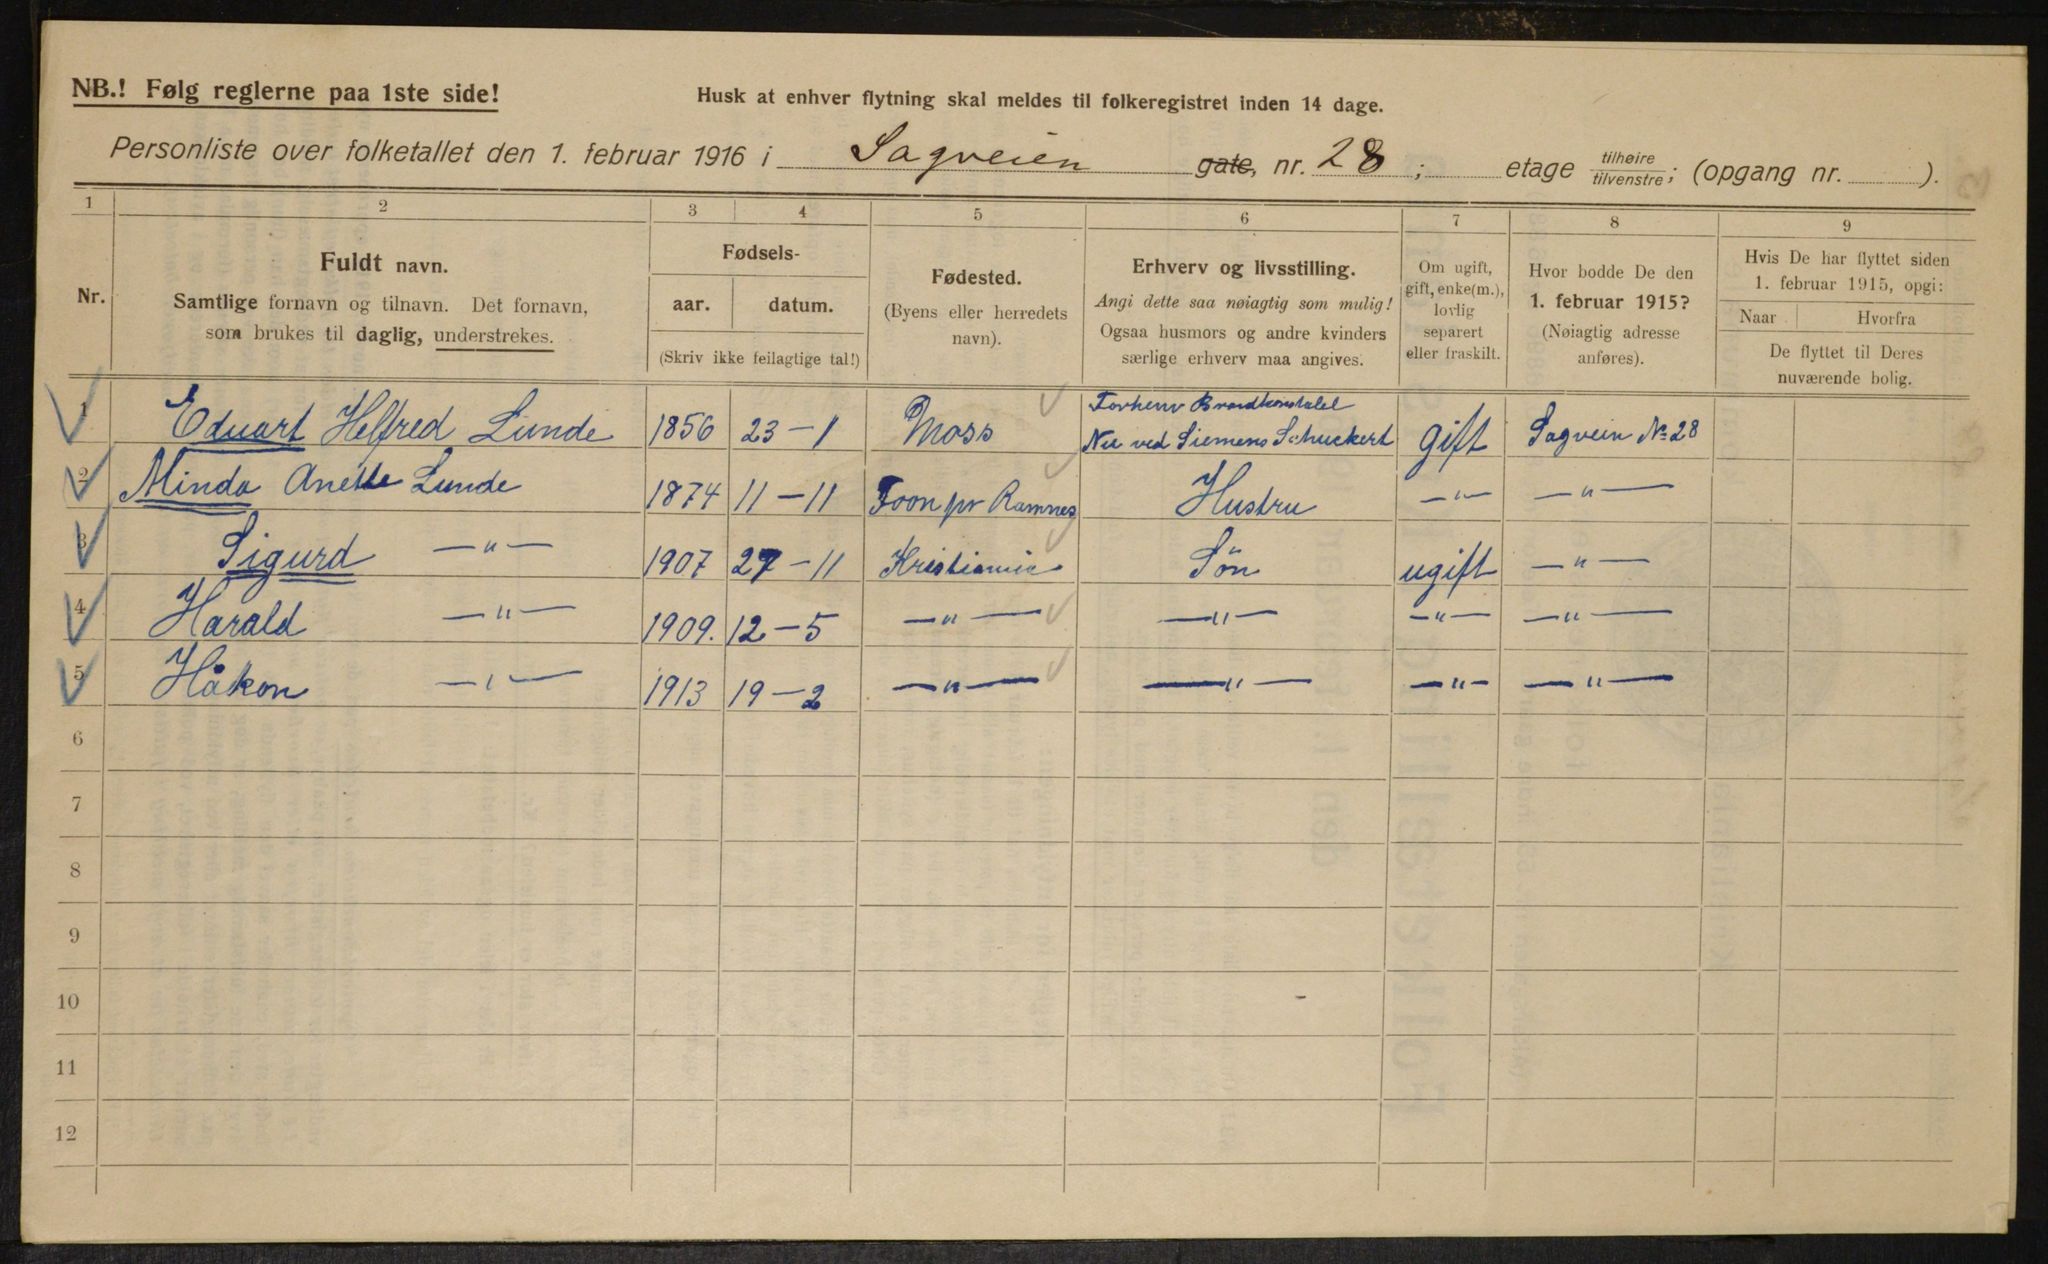 NB.! Følg reglerne paa 1ste side!
Husk at enhver flytning skal meldes til folkeregistret inden 14 dage.
Personliste over folketallet den 1. februar 1916 i Sagveien gate, nr. 28; etage tilhøire tilvenstre; (opgang nr. ).
1 2 3 4 5 6 7 8 9
Nr.
Fuldt navn.
Samtlige fornavn og tilnavn. Det fornavn,
som brukes til daglig, understrekes.
Fødsels-
aar. datum.
(Skriv ikke feilagtige tal!)
Fødested.
(Byens eller herredets
navn).
Erhverv og livsstilling.
Angi dette saa nøiagtig som mulig!
Ogsaa husmors og andre kvinders
særlige erhverv maa angives.
Om ugift,
gift, enke(m.),
lovlig
separert
eller fraskilt.
Hvor bodde De den
1. februar 1915?
(Nøiagtig adresse
anføres).
Hvis De har flyttet siden
1. februar 1915, opgi:
Naar Hvorfra
De flyttet til Deres
nuværende bolig.
1 Eduart Helfred Lunde 1856 23-1 Moss Forhenv Brandkonstabel
Nu ved Siemens Schuckert gift Sagvein No 28
2 Minda Anette Lunde 1874 11-11 Foon pr Ramnes Hustru —"— —"—
3 Sigurd —"— 1907 27-11 Kristiania Sön ugift —"—
4 Harald —"— 1909. 12-5 —"— —"— —"— —"—
5 Håkon —"— 1913 19-2 —"— —"— —"— —"—
6
7
8
9
10
11
12